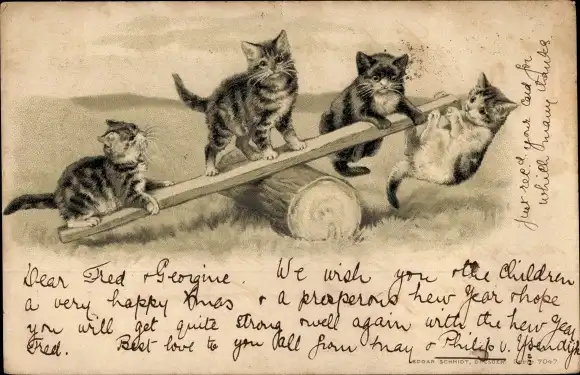 Dear Fred & Georgine. We wish you & the Children
a very happy Xmas & a prosperous new Year & hope
you will get quite strong & well again with the new Year
Fred. Best love to you all from May & Philip v.
EDGAR SCHMIDT, DRESDEN. 7047
Just rec.d your card for
which many thanks.